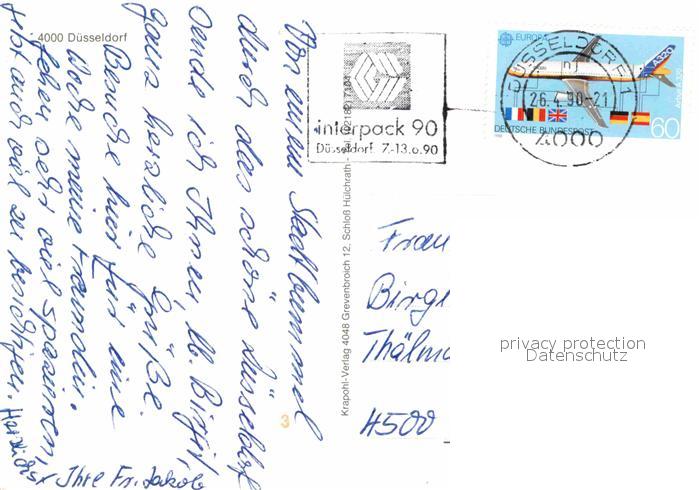 4000 Düsseldorf
Von einem Stadtbummel
durch das schöne Düsseldorf
sende ich Ihnen, lb. Birgit,
ganz herzliche Grüße.
Besuche hier für eine
Woche meine Freundin.
gibt auch viel zu besichtigen. Herzlichst
Ihre Fr. Jakob
3
Krapohl-Verlag 4048 Grevenbroich 12, Schloß Hülchrath
interpack 90
Düsseldorf 7.-13.6.90
EUROPA
A320
Airbus A320
DEUTSCHE BUNDESPOST
60
DÜSSELDORF 1
26.4.90-21
4000
Frau
Birgi
Thälma
4500
privacy protection
Datenschutz